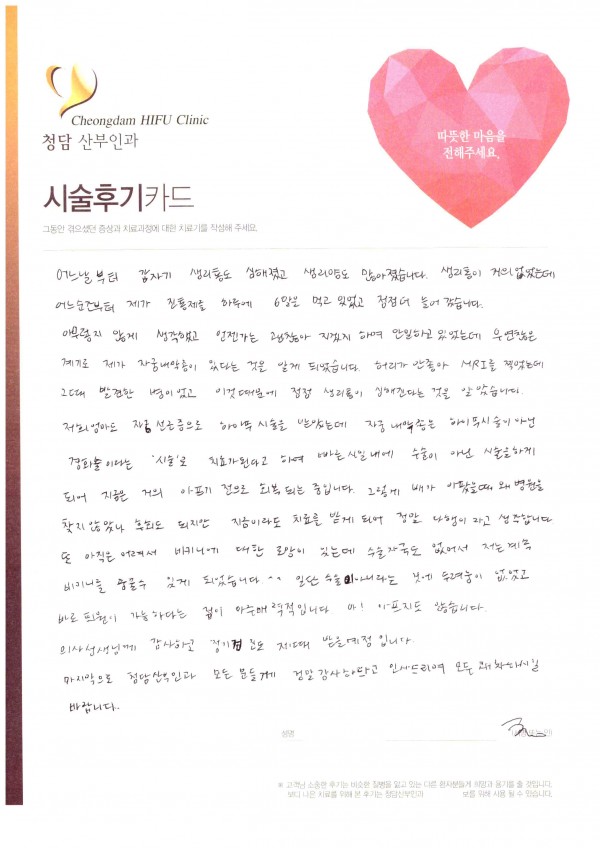 Cheongdam HIFU Clinic
청담 산부인과
따뜻한 마음을
전해주세요.
시술후기카드
그동안 겪으셨던 증상과 치료과정에 대한 치료기를 작성해 주세요.
어느날부터 갑자기 생리통도 심해졌고 생리양도 많아졌습니다. 생리통이 거의 없었는데
어느순간부터 제가 진통제를 하루에 6알은 먹고 있었고 점점 더 늘어 갔습니다.
아무렇지 않게 생각했고 언젠가는 괜찮아 지겠지 하며 안일하고 있었는데 우연찮은
계기로 제가 자궁내막종이 있다는 것을 알게 되었습니다. 허리가 안좋아 MRI를 찍었는데
그때 발견한 병이었고 이것때문에 점점 생리통이 심해진다는 것을 알았습니다.
저희 엄마도 자궁 선근증으로 하이푸 시술을 받았는데 자궁내막종은 하이푸시술이 아닌
경화술이라는 '시술'로 치료가된다고 하여 빠른시일내에 수술이 아닌 시술을하게
되어 지금은 거의 아프기 전으로 회복 되는 중입니다. 그렇게 배가 아팠을때 왜 병원을
찾지 않았나 후회도 되지만 지금이라도 치료를 받게 되어 정말 다행이라고 생각합니다
또 아직은 어려서 비키니에 대한 로망이 있는데 수술자국도 없어서 저는 계속
비키니를 꿈꿀수 있게 되었습니다. ^^ 일단 수술이 아니라는 것에 두려움이 없었고
바로 퇴원이 가능하다는 점이 아주 매력적입니다. 아! 아프지도 않습니다.
의사선생님께 감사하고 정기검진도 제때 받을예정 입니다.
마지막으로 청담산부인과 모든 분들께 정말 감사하다고 인사드리며 모두 쾌차하시길
바랍니다.
성명
※ 고객님 소중한 후기는 비슷한 질병을 앓고 있는 다른 환자분들게 희망과 용기를 줄 것입니다.
보다 나은 치료를 위해 본 후기는 청담산부인과 보를 위해 사용 될 수 있습니다.